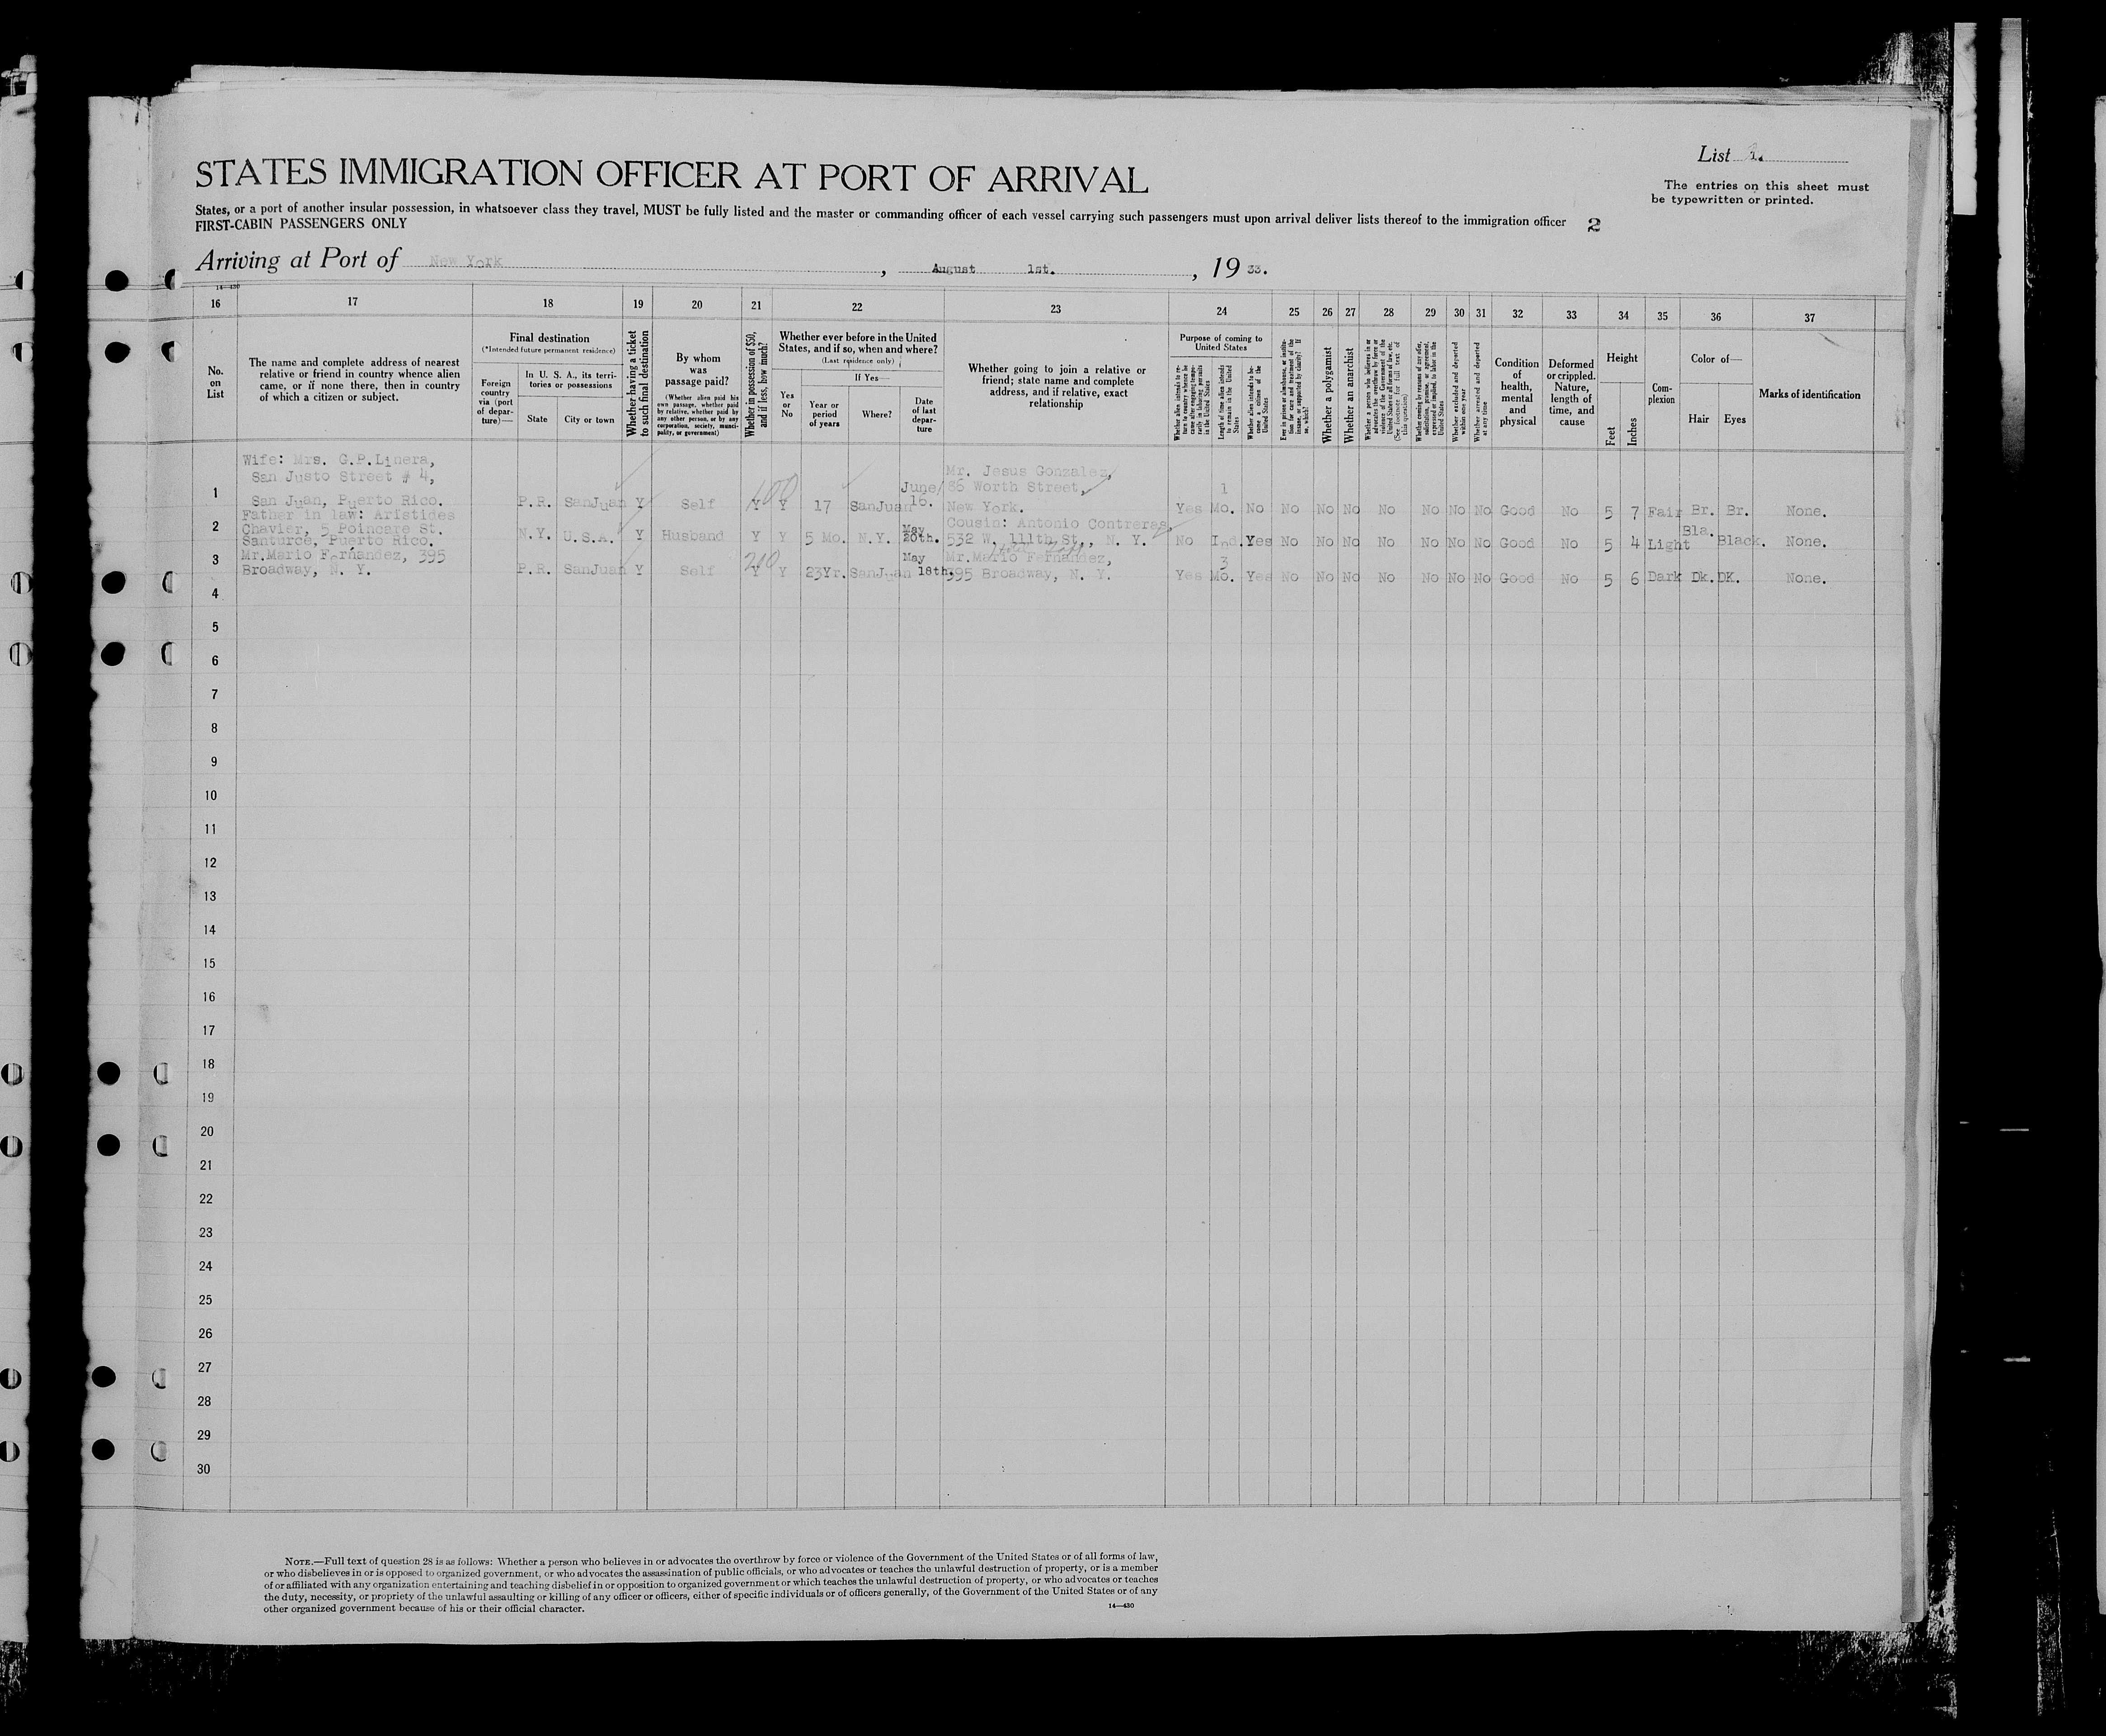 STATES IMMIGRATION OFFICER AT PORT OF ARRIVAL
List
The entries on this sheet must
be typewritten or printed.
States, or a port of another insular possession, in whatsoever class they travel, MUST be fully listed and the master or commanding officer of each vessel carrying such passengers must upon arrival deliver lists thereof to the immigration officer
FIRST-CABIN PASSENGERS ONLY
2
Arriving at Port of New York, August 1st., 1933.
14—430
16 17 18 19 20 21 22 23 24 25 26 27 28 29 30 31 32 33 34 35 36 37
No. on List
The name and complete address of nearest relative or friend in country whence alien came, or if none there, then in country of which a citizen or subject.
Final destination
(*Intended future permanent residence)
Foreign country via (port of departure)—
In U. S. A., its territories or possessions
State
City or town
Whether having a ticket to such final destination
By whom was passage paid?
(Whether alien paid his own passage, whether paid by relative, whether paid by any other person, or by any corporation, society, municipality, or government)
Whether in possession of $50, and if less, how much?
Whether ever before in the United States, and if so, when and where?
(Last residence only)
Yes or No
If Yes—
Year or period of years
Where?
Date of last departure
Whether going to join a relative or friend; state name and complete address, and if relative, exact relationship
Purpose of coming to United States
Whether alien intends to return to country whence he came after engaging temporarily in laboring pursuits in the United States
Length of time alien intends to remain in the United States
Whether alien intends to become a citizen of the United States
Ever in prison or almshouse, or institution for care and treatment of the insane, or supported by charity? If so, which?
Whether a polygamist
Whether an anarchist
Whether a person who believes in or advocates the overthrow by force or violence of the Government of the United States or all forms of law, etc. (See footnote for full text of this question)
Whether coming by reason of any offer, solicitation, promise, or agreement, expressed or implied, to labor in the United States
Whether excluded and deported within one year
Whether arrested and deported at any time
Condition of health, mental and physical
Deformed or crippled. Nature, length of time, and cause
Height
Feet
Inches
Complexion
Color of—
Hair
Eyes
Marks of identification
Wife: Mrs. G.P.Linera,
San Justo Street # 4,
1 San Juan, Puerto Rico. P.R. SanJuan Y Self Y 100 Y 17 SanJuan June/16. Mr. Jesus Gonzalez, 86 Worth Street, New York. Yes 1 Mo. No No No No No No No No Good No 5 7 Fair Br. Br. None.
Father in law: Aristides
2 Chavier, 5 Poincare St.
Santurce, Puerto Rico. N.Y. U.S.A. Y Husband Y Y 5 Mo. N.Y. May 20th. Cousin: Antonio Contreras, 532 W. 111th St., N. Y. No Ind. Yes No No No No No No No Good No 5 4 Light Bla. Black. None.
3 Mr.Mario Fernandez, 395
Broadway, N. Y. P.R. SanJuan Y Self Y 200 Y 23Yr. SanJuan May 18th. Mr.Mario Fernandez, 395 Broadway, N. Y. Yes 3 Mo. Yes No No No No No No No Good No 5 6 Dark Dk. DK. None.
4
5
6
7
8
9
10
11
12
13
14
15
16
17
18
19
20
21
22
23
24
25
26
27
28
29
30
NOTE.—Full text of question 28 is as follows: Whether a person who believes in or advocates the overthrow by force or violence of the Government of the United States or of all forms of law,
or who disbelieves in or is opposed to organized government, or who advocates the assassination of public officials, or who advocates or teaches the unlawful destruction of property, or is a member
of or affiliated with any organization entertaining and teaching disbelief in or opposition to organized government or which teaches the unlawful destruction of property, or who advocates or teaches
the duty, necessity, or propriety of the unlawful assaulting or killing of any officer or officers, either of specific individuals or of officers generally, of the Government of the United States or of any
other organized government because of his or their official character.
14—430